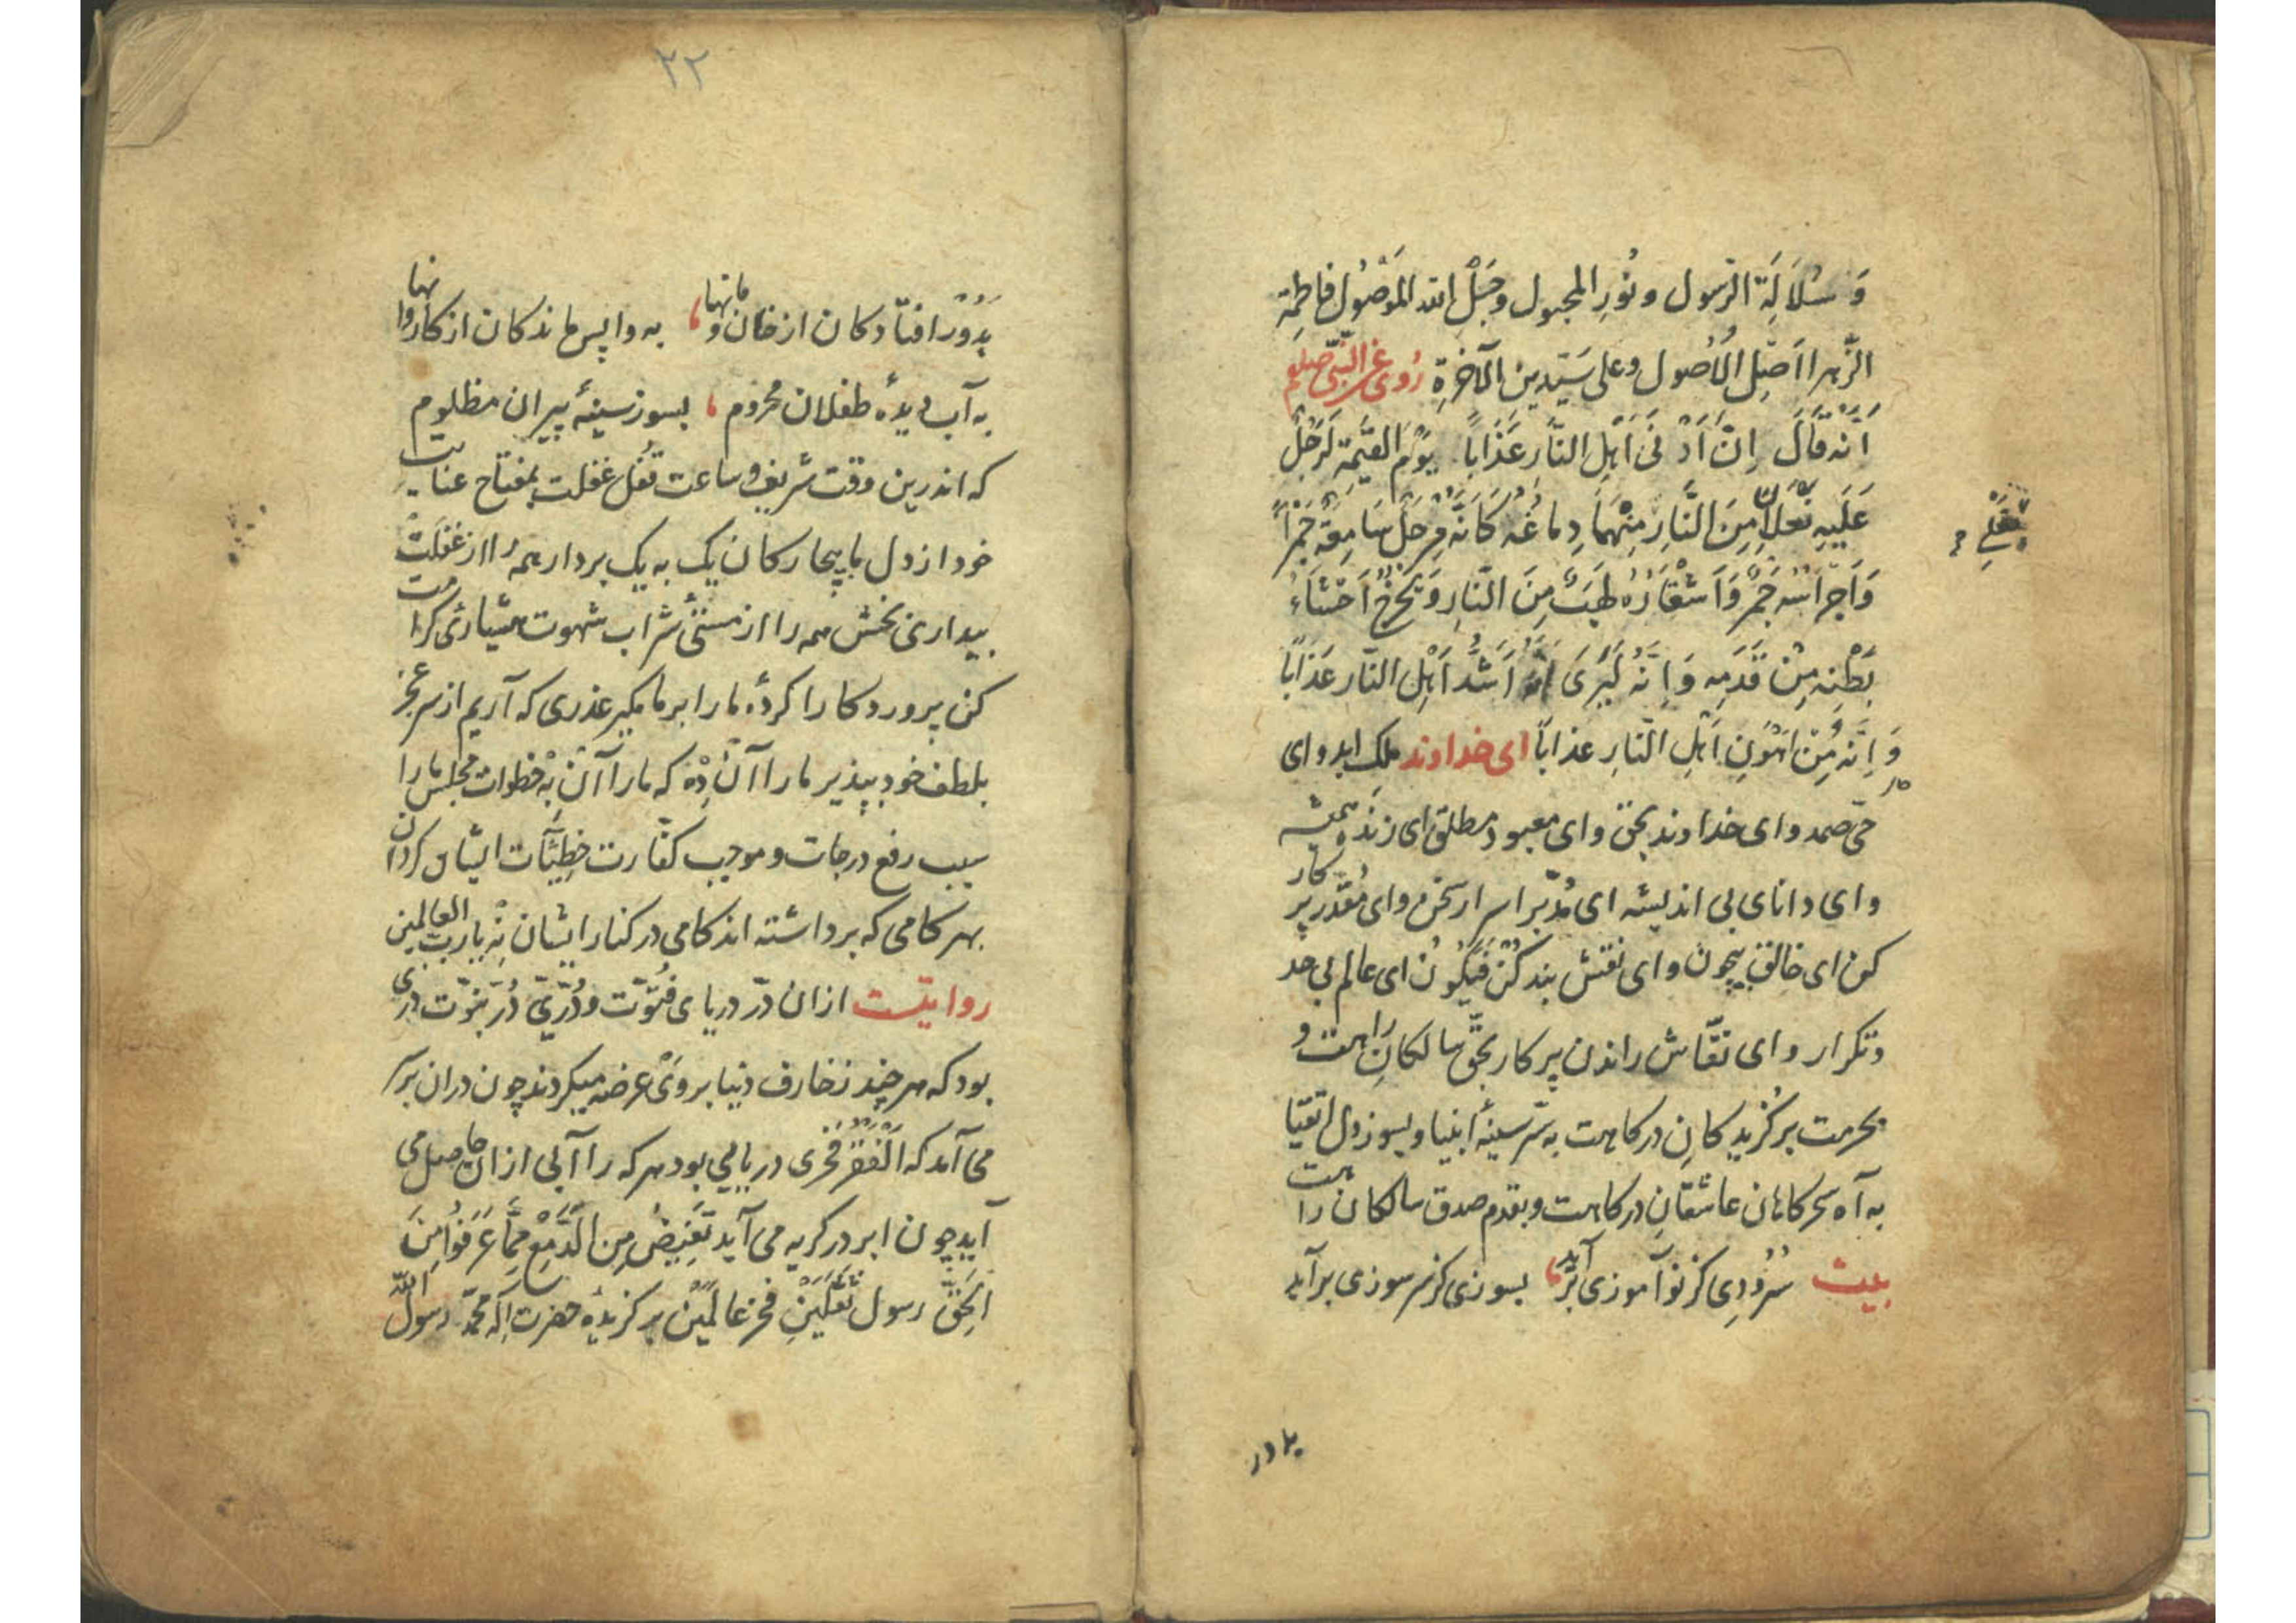 وَ سُلَالَةِ الرسول و نُورِ المجبول وحَبْلِ الله المَوْصُولِ فاطمِة
الزّهرا اَصْلِ الْاُصُول وعلى سَيّدين الآخرةِ رُوِیَ عَنِ النّبی صلعم
اَنَّه قَالَ اِنَّ اَدْنَی اَهْلِ النَّار عَذَاباً یَوْمَ القیٰمةِ لَرَجُلٌ
عَلَیهِ نَعْلَانِ مِنَ النَّارِ مِنْهُمَا دِماغُهُ کَاَنَّهُ مِرْجَلٌ سَامِعَهُ جَمْرٌ
نعلی
وَاَضْرَاسُه جَمْرٌ وَاَشْفَارُهُ لَهَبٌ مِنَ النَّارِ وَ یَخْرُجُ اَحْشَاءُ
بَطْنِهِ مِنْ قَدَمِه وَ اِنَّهُ لَیَرَیٰ اَنَّهُ اَشَدُّ اَهْلِ النّار عَذَاباً
وَ اِنَّه مِنْ اَهْوَنِ اَهْلِ النّارِ عذاباً ای خداوند ملک ابد و ای
حَیّ صمد و ای خداوند بحق و ای معبود مطلق ای زنده همیشه
و ای دانای بی اندیشه ای مُدبّر اسرار سخن و ای مُقدّر پرکار
کن ای خالق بیچون و ای نقش بند کُنْ فَیَکُونُ ای عالم بی جد
و تکرار و ای نقّاش راندن پرکار بحقّ سالکانِ راهت و
بحرمت برگُزیدکانِ درکاهت به سرّ سینهٔ انبیا و بسوز دل اتقیا
به آه سحرکاهان عاشقانِ درکاهت و بقدم صدق سالکان راهت
بیت سُرُودِی کز نوآموزی برآید بسوزی کز سر سوزی برآید
بدور
۲۲
بدَوْر افتادکان از خان و مانها به واپس ماندکان از کاروانها
به آب دیدهٔ طفلان محروم بسوز سینهٔ پیران مظلوم
که اندرین وقت شریف و ساعت قُفل غفلت بمفتاح عنایت
خود از دل ما بیچارکان یک به یک بردار همه را از غفلت
بیداری بخش همه را از مستیٔ شراب شهوت هشیاری کرامت
کن پروردکارا کردهٔ ما را بر ما مکیر عذری که آریم از سر عجز
بلطف خود بپذیر ما را آن دِهْ که ما را آن بِهْ خطوات مجلس ما را
سبب رفع درجات و موجب کفّارت خطِیّئات ایشان کردان
بهر کامی که برداشته اند کامی در کنار ایشان نِهْ یا رب العالمین
روایتست از ان درّ دریای فُتوّت و دُرّیّ دُرّ نبوّت دری
بود که هر چند زخارف دنیا بر وَیْ عرضه میکردند چون دران بر سر
می آمد که اَلْفَقْرُ فَخْرِی دریایی بود هر که را آبی از ان حاصل می
آید چون ابر در کریه می آید تَفِیضُ مِنَ الَّدمْعِ مِمَّا عَرَفُوا مِنَ
الحَقّ رسول ثقلَیْنِ فخر عالَمَیْن برکزیدهٔ حضرت اِله محمّد رسول الله